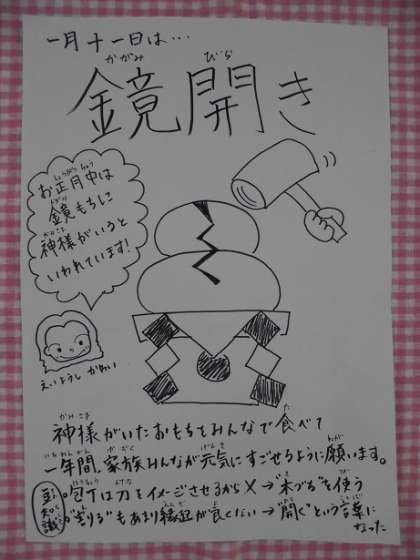 一月十一日は…
鏡開き
かがみ びら
お正月中は
しょうがつちゅう
鏡もちに
かがみ
神様がいると
かみさま
いわれています!
えいようし かめい
神様がいたおもちをみんなで食べて
かみさま た
一年間、家族みんなが元気にすごせるように願います。
いちねんかん かぞく げんき ねが
豆知識
包丁は刀をイメージさせるから×→"木づち"を使う
ほうちょう かたな き つか
"割る"もあまり縁起が良くない→"開く"という言葉に
わ えんぎ よ ひら ことば
なった